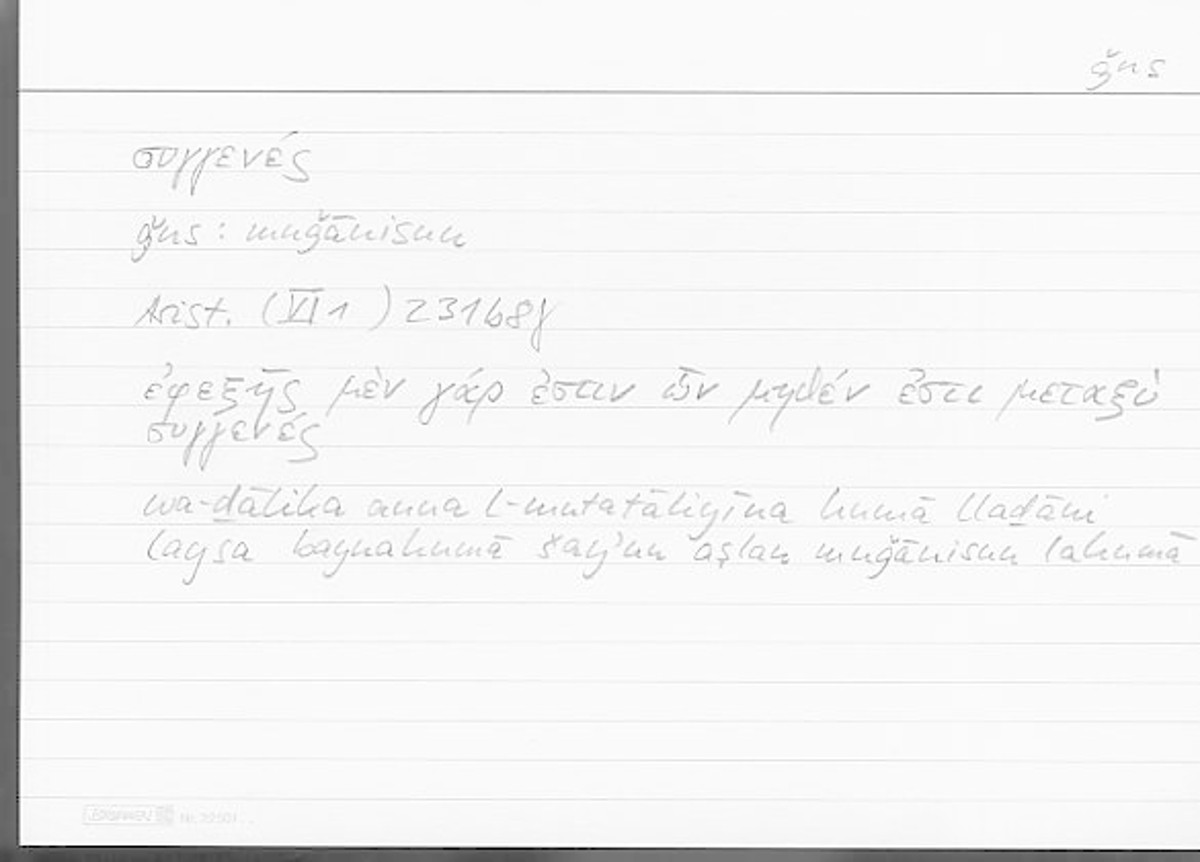 ǧns
συγγενές
ǧns : muǧānisun
Arist. (VI 1 ) 231b8f
ἐφεξῆς μὲν γάρ ἐστιν ὧν μηθέν ἐστι μεταξὺ
συγγενές
wa-ḏālika anna l-mutatāliyīna humā llaḏāni
laysa baynahumā šay'un aṣlan muǧānisun lahumā